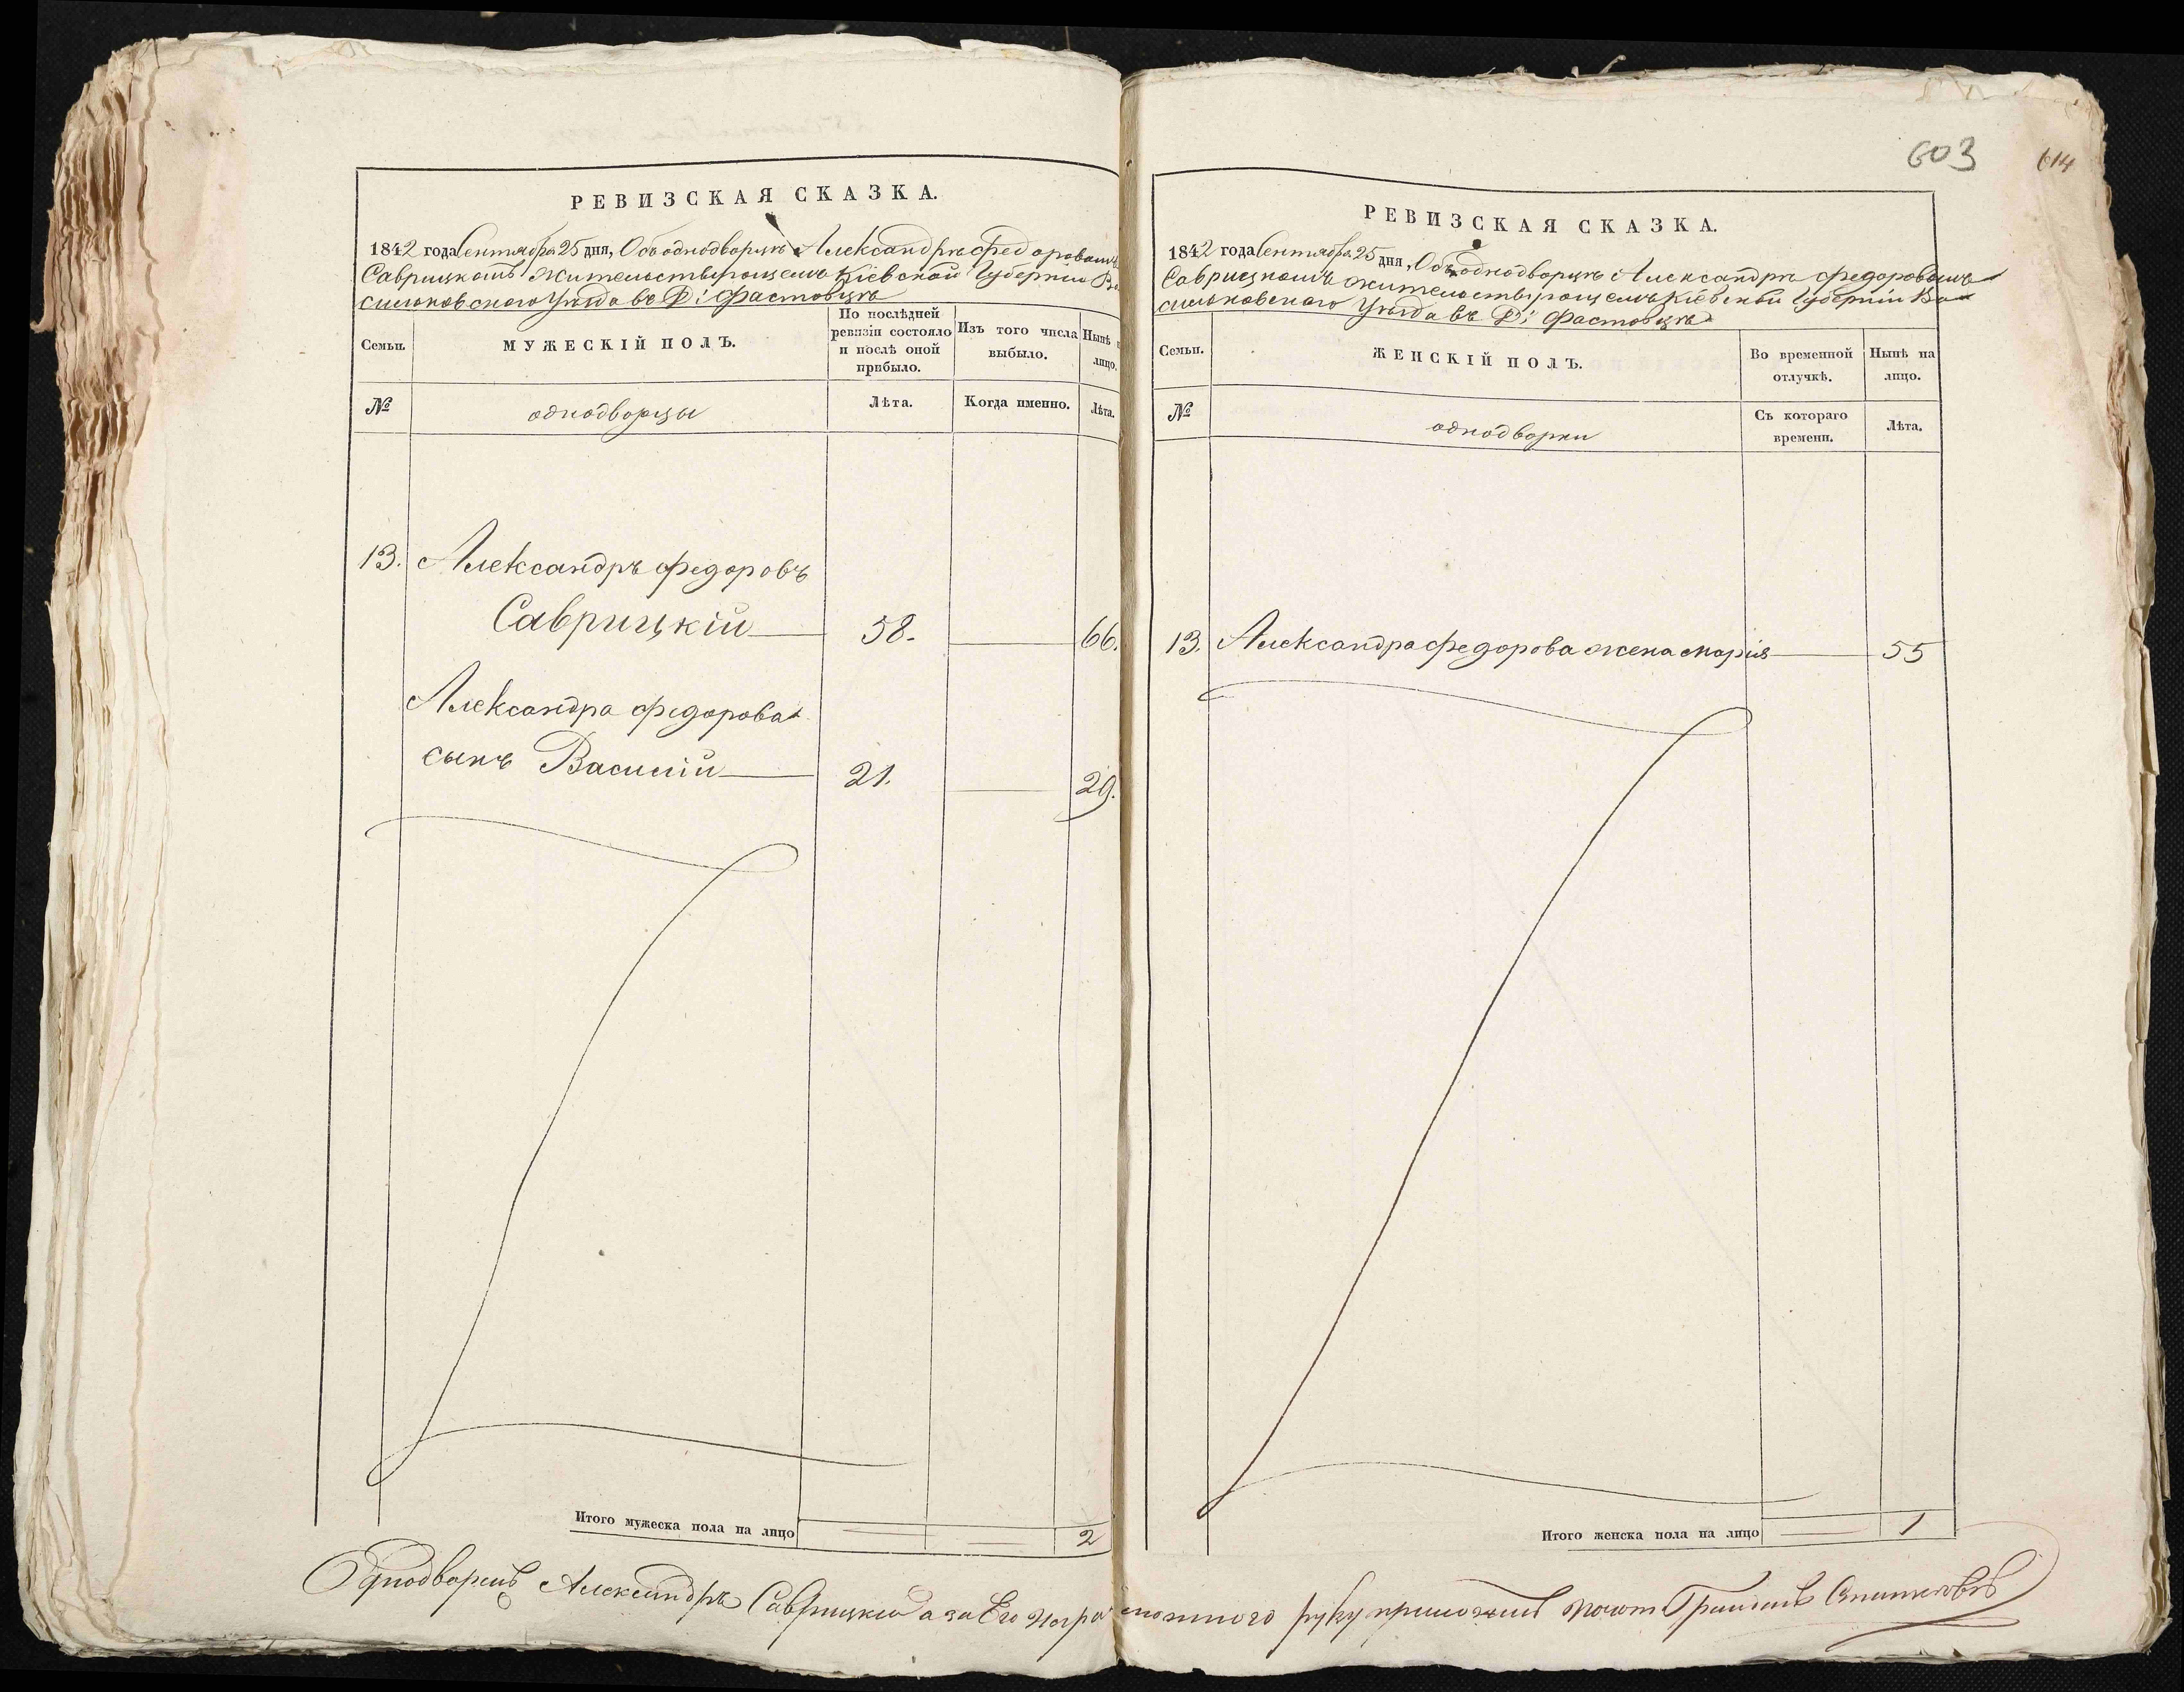 РЕВИЗСКАЯ СКАЗКА.
1842 года Сентября 25 дня, Объ однодворцѣ Александрѣ Федоровомъ
Саврицкомъ жительствующемъ Кіевской Губерніи Ва
сильковскаго Уѣзда въ Д: Фастовцѣ
Семьи.
МУЖЕСКІЙ ПОЛЪ.
По послѣдней ревизіи состояло и послѣ оной прибыло.
Изъ того числа выбыло.
Нынѣ н лицо.
№
однодворцы
Лѣта.
Когда именно.
Лѣта.
13. Александръ Федоровъ
Саврицкій 58. 66.
Александра Федорова
сынъ Василій 21. 29.
Итого мужеска пола на лицо 2
603
614
РЕВИЗСКАЯ СКАЗКА.
1842 года Сентября 25 дня, Объ однодворцѣ Александрѣ Федоровомъ
Саврицкомъ жительствующемъ Кіевской Губерніи Ва
сильковскаго Уѣзда въ Д: Фастовцѣ
Семьи.
ЖЕНСКІЙ ПОЛЪ.
Во временной отлучкѣ.
Нынѣ на лицо.
№
однодворки
Съ котораго времени.
Лѣта.
13. Александра Федорова жена Марія 55
Итого женска пола на лицо 1
Однодворецъ Александръ Саврицкій а за Его неграмотного руку приложилъ